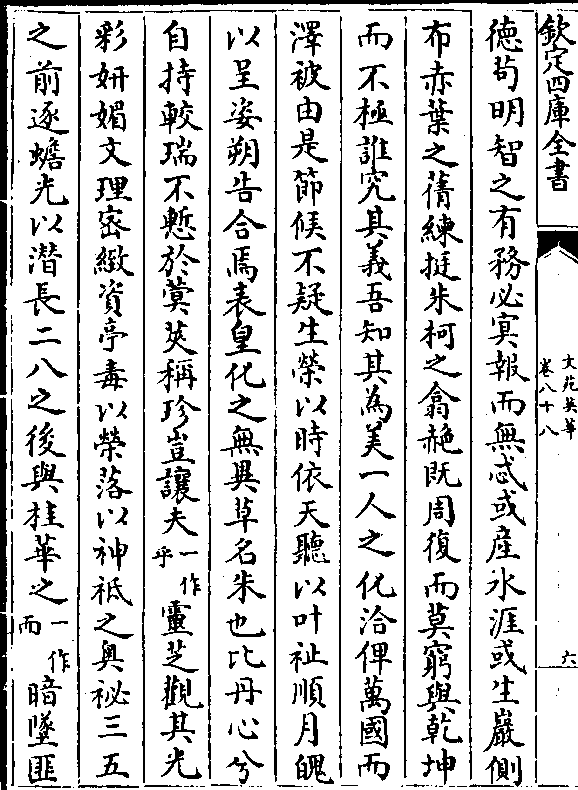 欽定四庫全書
文苑英華
卷八十八
六
德茍明智之有務必冥報而無忒或産氷涯或生巖側
布赤葉之蒨練挺朱柯之翕赩既周復而莫窮與乾坤
而不極誰究其義吾知其為美一人之化洽俾萬國而
澤被由是節候不疑生榮以時依天聽以叶祉順月魄
以呈姿朔告合焉表皇化之無異草名朱也比丹心兮
自持較瑞不慙於蓂莢稱珍豈讓夫一作乎靈芝觀其光
彩妍媚文理密緻資亭毒以榮落以神祗之奥祕三五
之前逐蟾光以潛長二八之後與桂華之一作而暗墜匪